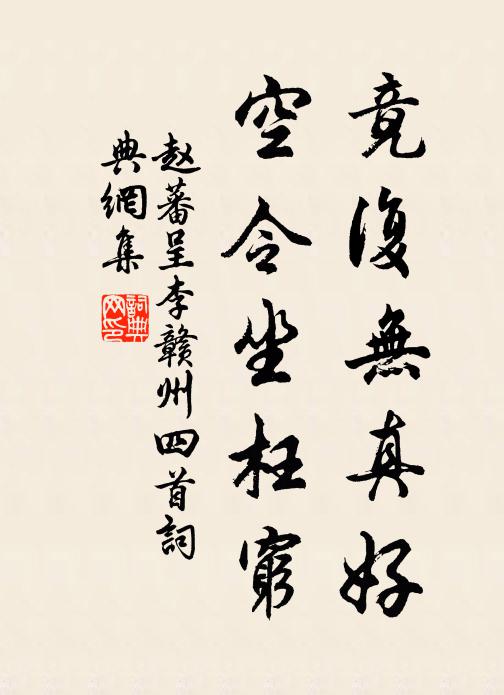 竟復無真好
空令坐枉窮
赵蕃呈李赣州四首詞
典網集
詞典
网印